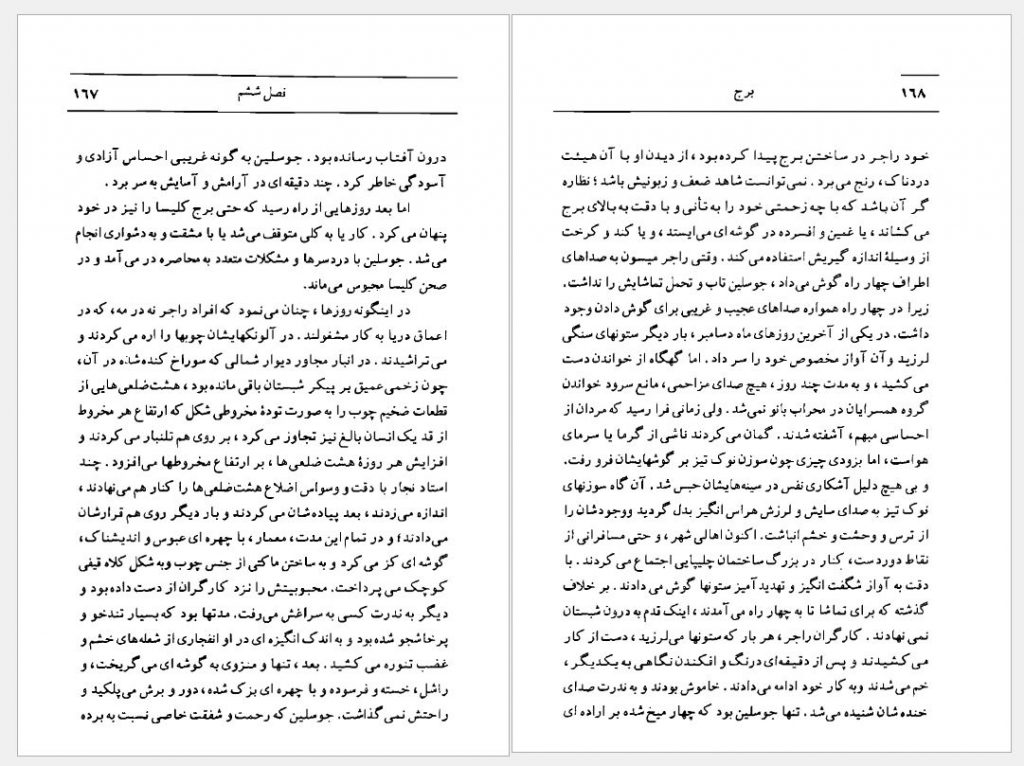 ۱۶۷
فصل ششم
درون آفتاب رسانده بود . جوسلین به گونه غریبی احساس آزادی و
آسودگی خاطر کرد . چند دقیقه ای در آرامش و آسایش به سر برد .
اما بعد روزهایی از راه رسید که حتی برج کلیسا را نیز در خود
پنهان می کرد . کار یا به کلی متوقف می‌شد یا با مشقت و به دشواری انجام
می‌شد . جوسلین با دردسرها و مشکلات متعدد به محاصره در می آمد و در
صحن کلیسا محبوس می‌ماند.
در اینگونه روزها ، چنان می‌نمود که افراد راجر نه در مه، که در
اعماق دریا به کار مشغولند . در آلونکهایشان چوبها را اره می کردند و
می‌تراشیدند . در انبار مجاور دیوار شمالی که سوراخ کنده‌شده در آن،
چون زخمی‌عمیق بر پیکر شبستان باقی مانده بود ، هشت‌ضلعی‌هایی از
قطعات ضخیم چوب را به صورت تودهٔ مخروطی شکل که ارتفاع هر مخروط
از قد یک انسان بالغ نیز تجاوز می‌کرد ، بر روی هم تلنبار می کردند و
افزایش هر روزهٔ هشت‌ضلعی‌ها ، بر ارتفاع مخروطها می‌افزود . چند
استاد نجار با دقت و وسواس اضلاع هشت‌ضلعی‌ها را کنار هم می‌نهادند ،
اندازه می‌زدند ، بعد پیاده‌شان می کردند و بار دیگر روی هم قرارشان
می‌دادند؛ و در تمام این مدت، معمار، با چهره ای عبوس و اندیشناک،
گوشه ای کز می کرد و به ساختن ماکتی از جنس چوب وبه شکل کلاه قیفی
کوچک می پرداخت. محبوبیتش را نزد کارگران از دست داده بود و
دیگر به ندرت کسی به سراغش می‌رفت. مدتها بود که بسیار تندخو و
پرخاشجو شده بود و به اندک انگیزه ای در او انفجاری از شعله‌های خشم و
غضب تنوره می کشید . بعد ، تنها و منزوی به گوشه ای می گریخت، و
راشل، خسته و فرسوده و با چهره ای بزک شده، دور و برش می‌پلکید و
راحتش نمی گذاشت. جوسلین که رحمت و شفقت خاصی نسبت به برده
برج
۱۶۸
خود راجر در ساختن برج پیدا کرده بود ، از دیدن او با آن هیئت
دردناک، رنج می‌برد . نمی‌توانست شاهد ضعف و زبونیش باشد ؛ نظاره
گر آن باشد که با چه زحمتی خود را به تأنی و با دقت به بالای برج
می کشاند ، یا غمین و افسرده در گوشه ای می‌ایستد ، و یا کند و کرخت
از وسیلهٔ اندازه گیریش استفاده می‌کند . وقتی راجر میسون به صداهای
اطراف چهار راه گوش می‌داد ، جوسلین تاب و تحمل تماشایش را نداشت.
زیرا در چهار راه همواره صداهای عجیب و غریبی برای گوش دادن وجود
داشت. در یکی از آخرین روزهای ماه دسامبر، بار دیگر ستونهای سنگی
لرزید و آن آواز مخصوص خود را سر داد . اما گهگاه از خواندن دست
می کشید ، و به مدت چند روز ، هیچ صدای مزاحمی، مانع سرود خواندن
گروه همسرایان در محراب بانو نمی‌شد . ولی زمانی فرا رسید که مردان از
احساسی مبهم، آشفته شدند . گمان می کردند ناشی از گرما یا سرمای
هواست، اما بزودی چیزی چون سوزن نوک تیز بر گوشهایشان فرو رفت.
و بی هیچ دلیل آشکاری نفس در سینه‌هایشان حبس شد . آن گاه سوزنهای
نوک تیز به صدای سایش و لرزش هراس انگیز بدل گردید ووجودشان را
از ترس و وحشت و خشم انباشت. اکنون اهالی شهر ، و حتی مسافرانی از
نقاط دوردست، کنار در بزرگ ساختمان چلیپایی اجتماع می کردند . با
دقت به آواز شگفت انگیز و تهدید آمیز ستونها گوش می دادند . بر خلاف
گذشته که برای تماشا تا به چهار راه می آمدند ، اینک قدم به درون شبستان
نمی نهادند . کارگران راجر، هر بار که ستونها می‌لرزید، دست از کار
می کشیدند و پس از دقیقه‌ای درنگ و افکندن نگاهی به یکدیگر ،
خم می‌شدند وبه کار خود ادامه می‌دادند . خاموش بودند و به ندرت صدای
خنده شان شنیده می‌شد . تنها جوسلین بود که چهار میخ شده بر اراده ای